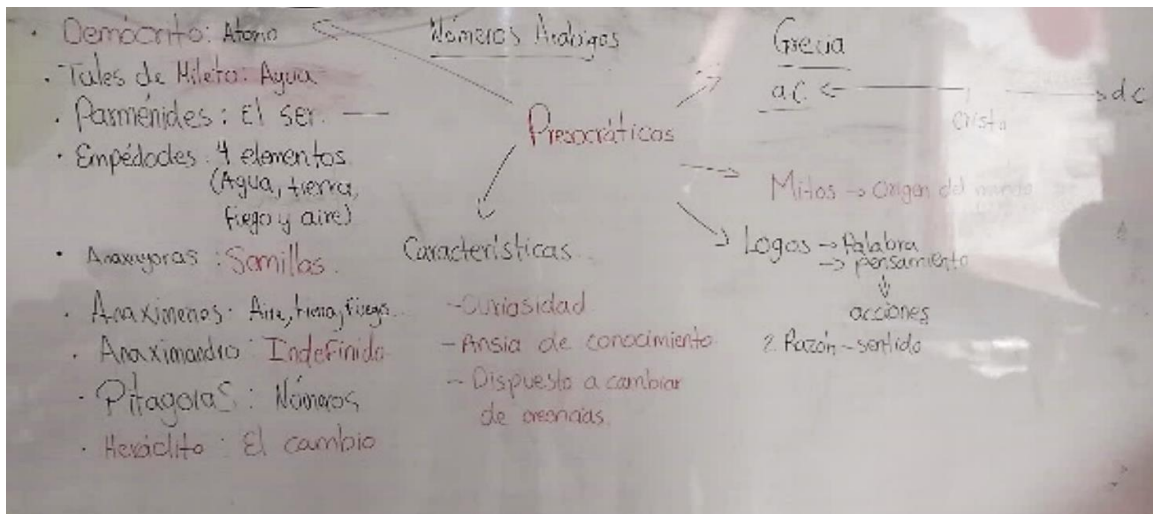 · Demócrito: Atomo
· Tales de Mileto: Agua
· Parménides: El ser.
· Empédocles: 4 elementos
(Agua, tierra,
fuego y aire)
· Anaxagoras: Semillas.
· Anaximenes: Aire, tierra, fuego
· Anaximandro: Indefinido
· Pitagoras: Números
· Heráclito: El cambio
Números Arábigos
Presocráticos
Características
- Curiosidad
- Ansia de conocimiento
- Dispuesto a cambiar
de creencias.
Grecia
a.C. d.C
Cristo
Mitos → Origen del mundo
Logos → Palabra
→ pensamiento
acciones
2 Razón - sentido